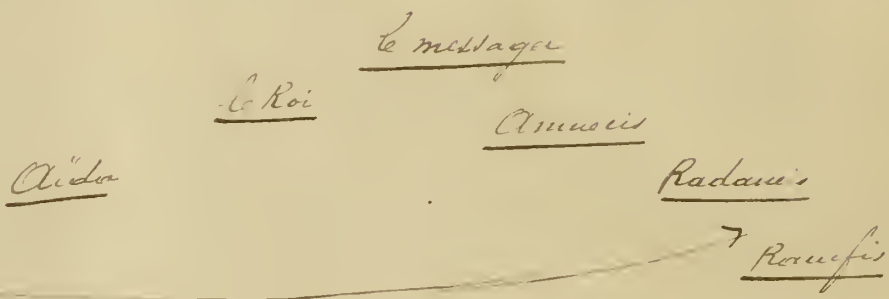 le messager
le Roi
Amneris
Aïda
Radamès
Ramfis